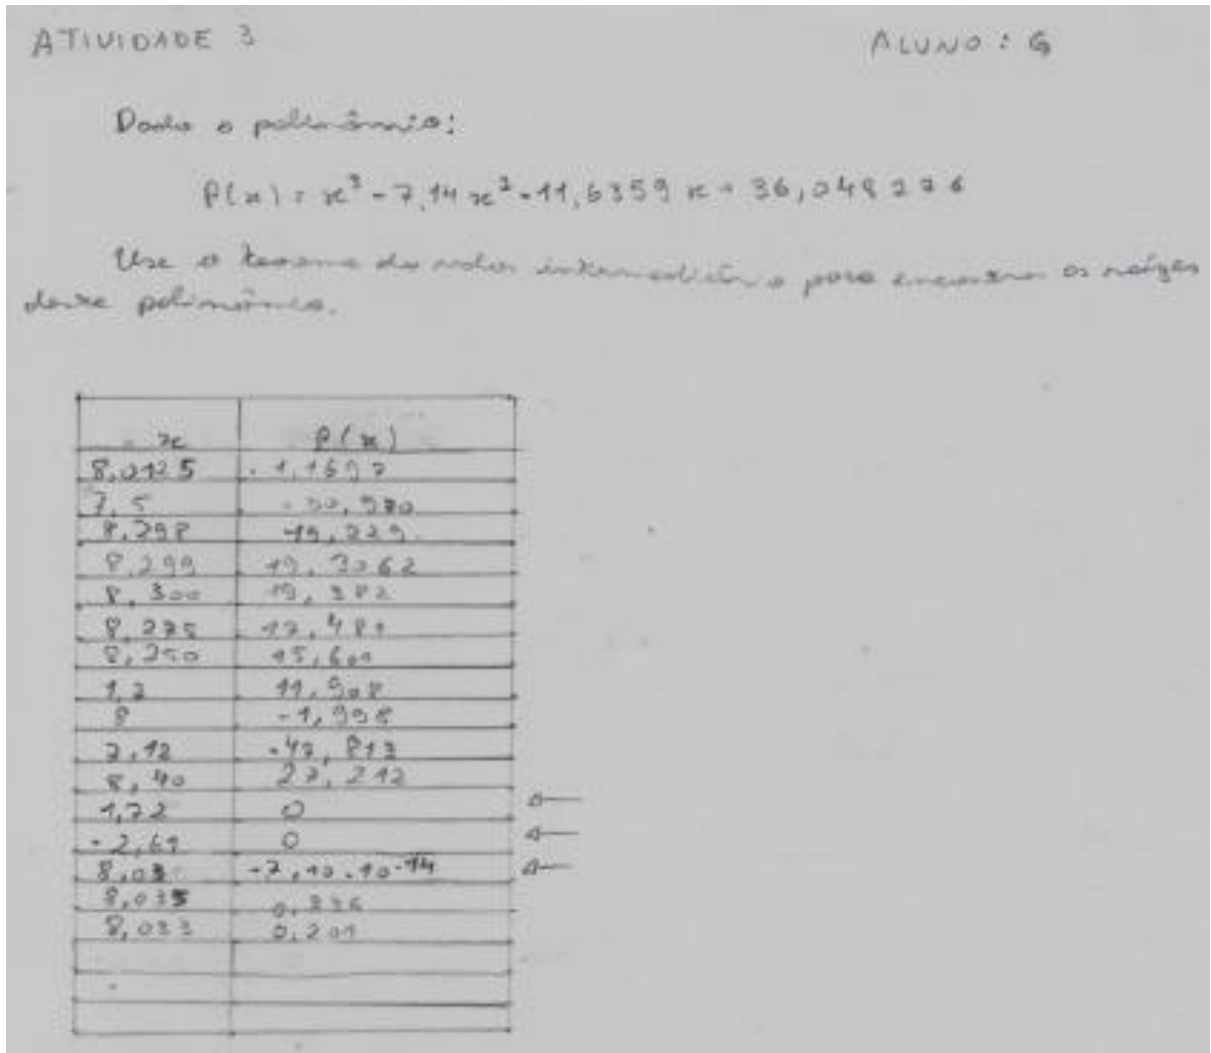 ATIVIDADE 3
ALUNO: G
Dado o polinômio:
P(x) = x³ - 7,14x² - 11,6359x + 36,048276
Use o teorema do valor intermediário para encontrar as raízes
deste polinômio.
x P(x)
8,0125 -1,1697
7,5 -30,970
8,298 19,229
8,299 19,3062
8,300 19,382
8,275 17,481
8,250 15,601
1,2 11,908
8 -1,998
7,12 -47,813
8,40 27,212
1,72 0
-2,61 0
8,03 -7,10.10-14
8,035 0,336
8,033 0,201